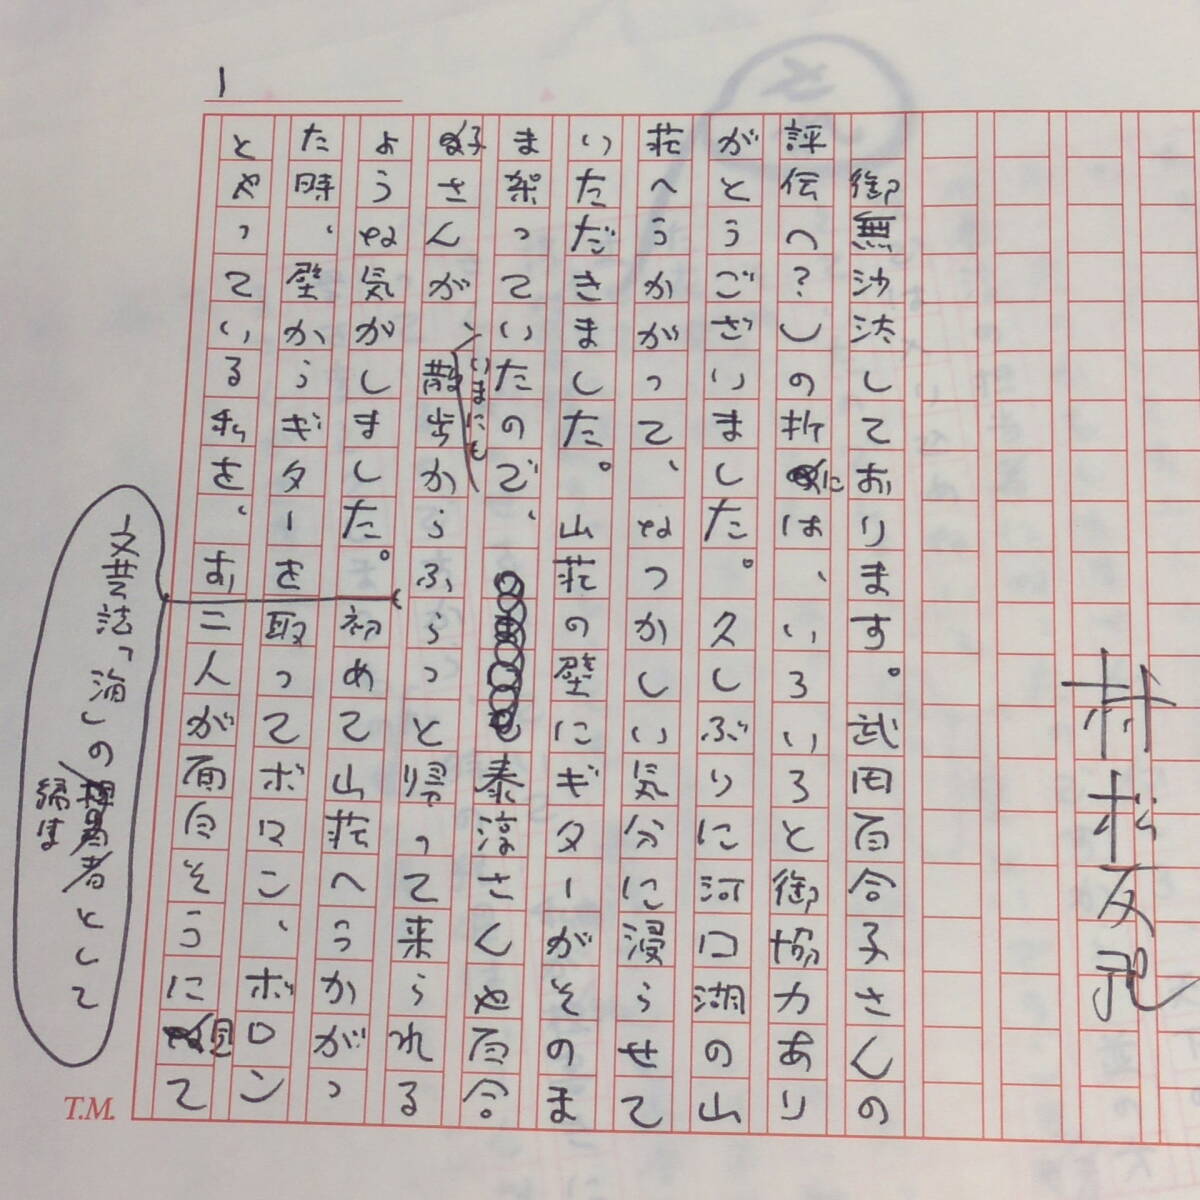 村松友視
御無沙汰しております。武田百合子さんの
評伝へ?しの折には、いろいろと御協力あり
がとうございました。久しぶりに河口湖の山
荘へうかがって、なつかしい気分に浸らせて
いただきました。山荘の壁にギターがそのま
ま架っていたので、泰淳さんや百合
いまにも
子さんが散歩からふらっと帰って来られる
ような気がしました。初めて山荘へうかがっ
た時、壁からギターを取ってボロン、ボロン
とやっている私を、お二人が面白そうに見て
文芸誌「海」の編集者として
1
T.M.